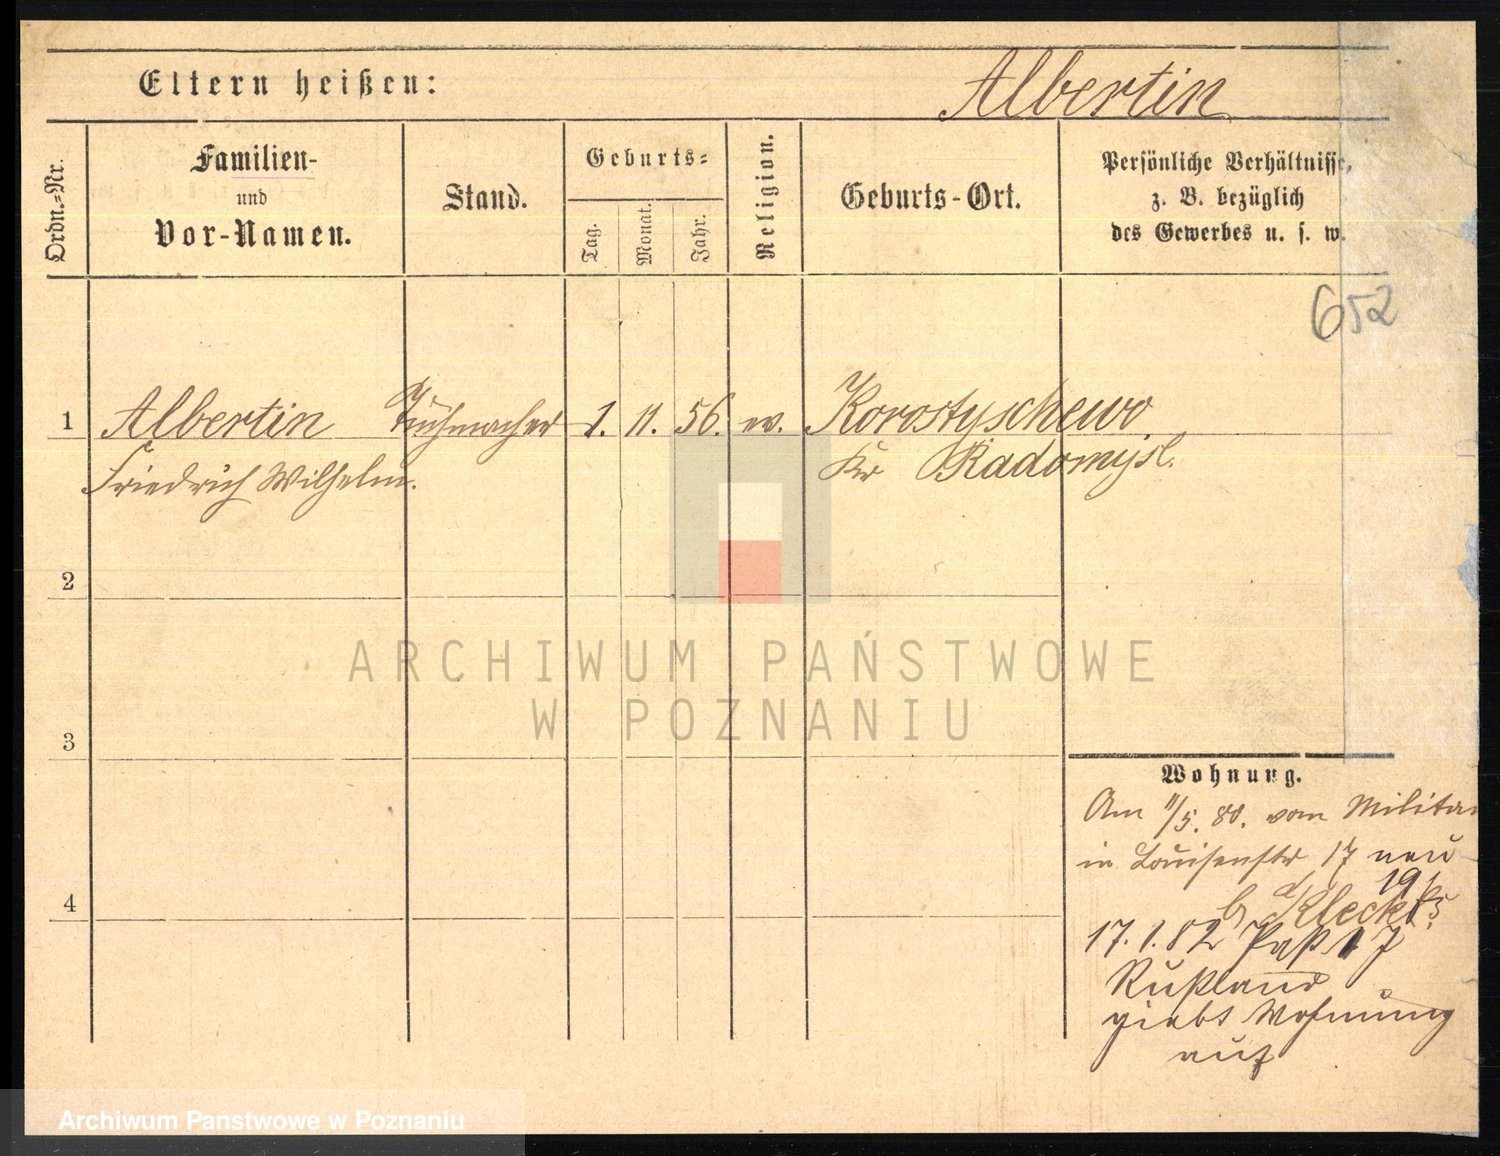 Eltern heißen: Albertin
Ordn.-Nr.
Familien-
und
Vor-Namen.
Stand.
Geburts-
Tag.
Monat.
Jahr.
Religion.
Geburts-Ort.
Persönliche Verhältnisse,
z. B. bezüglich
des Gewerbes u. s. w.
652
1 Albertin Tuchmacher 1. 11. 56. ev. Korostyschewo
Friedrich Wilhelm. Kr Radomysl.
2
3
4
Wohnung.
Am 11/5. 80. vom Militar
in Louisenstr 17 neu
19
b/ Kleck
17. 1. 82 Paß 1 J
Rußland
giebt Wohnung
auf
ARCHIWUM PAŃSTWOWE
W POZNANIU
Archiwum Państwowe w Poznaniu